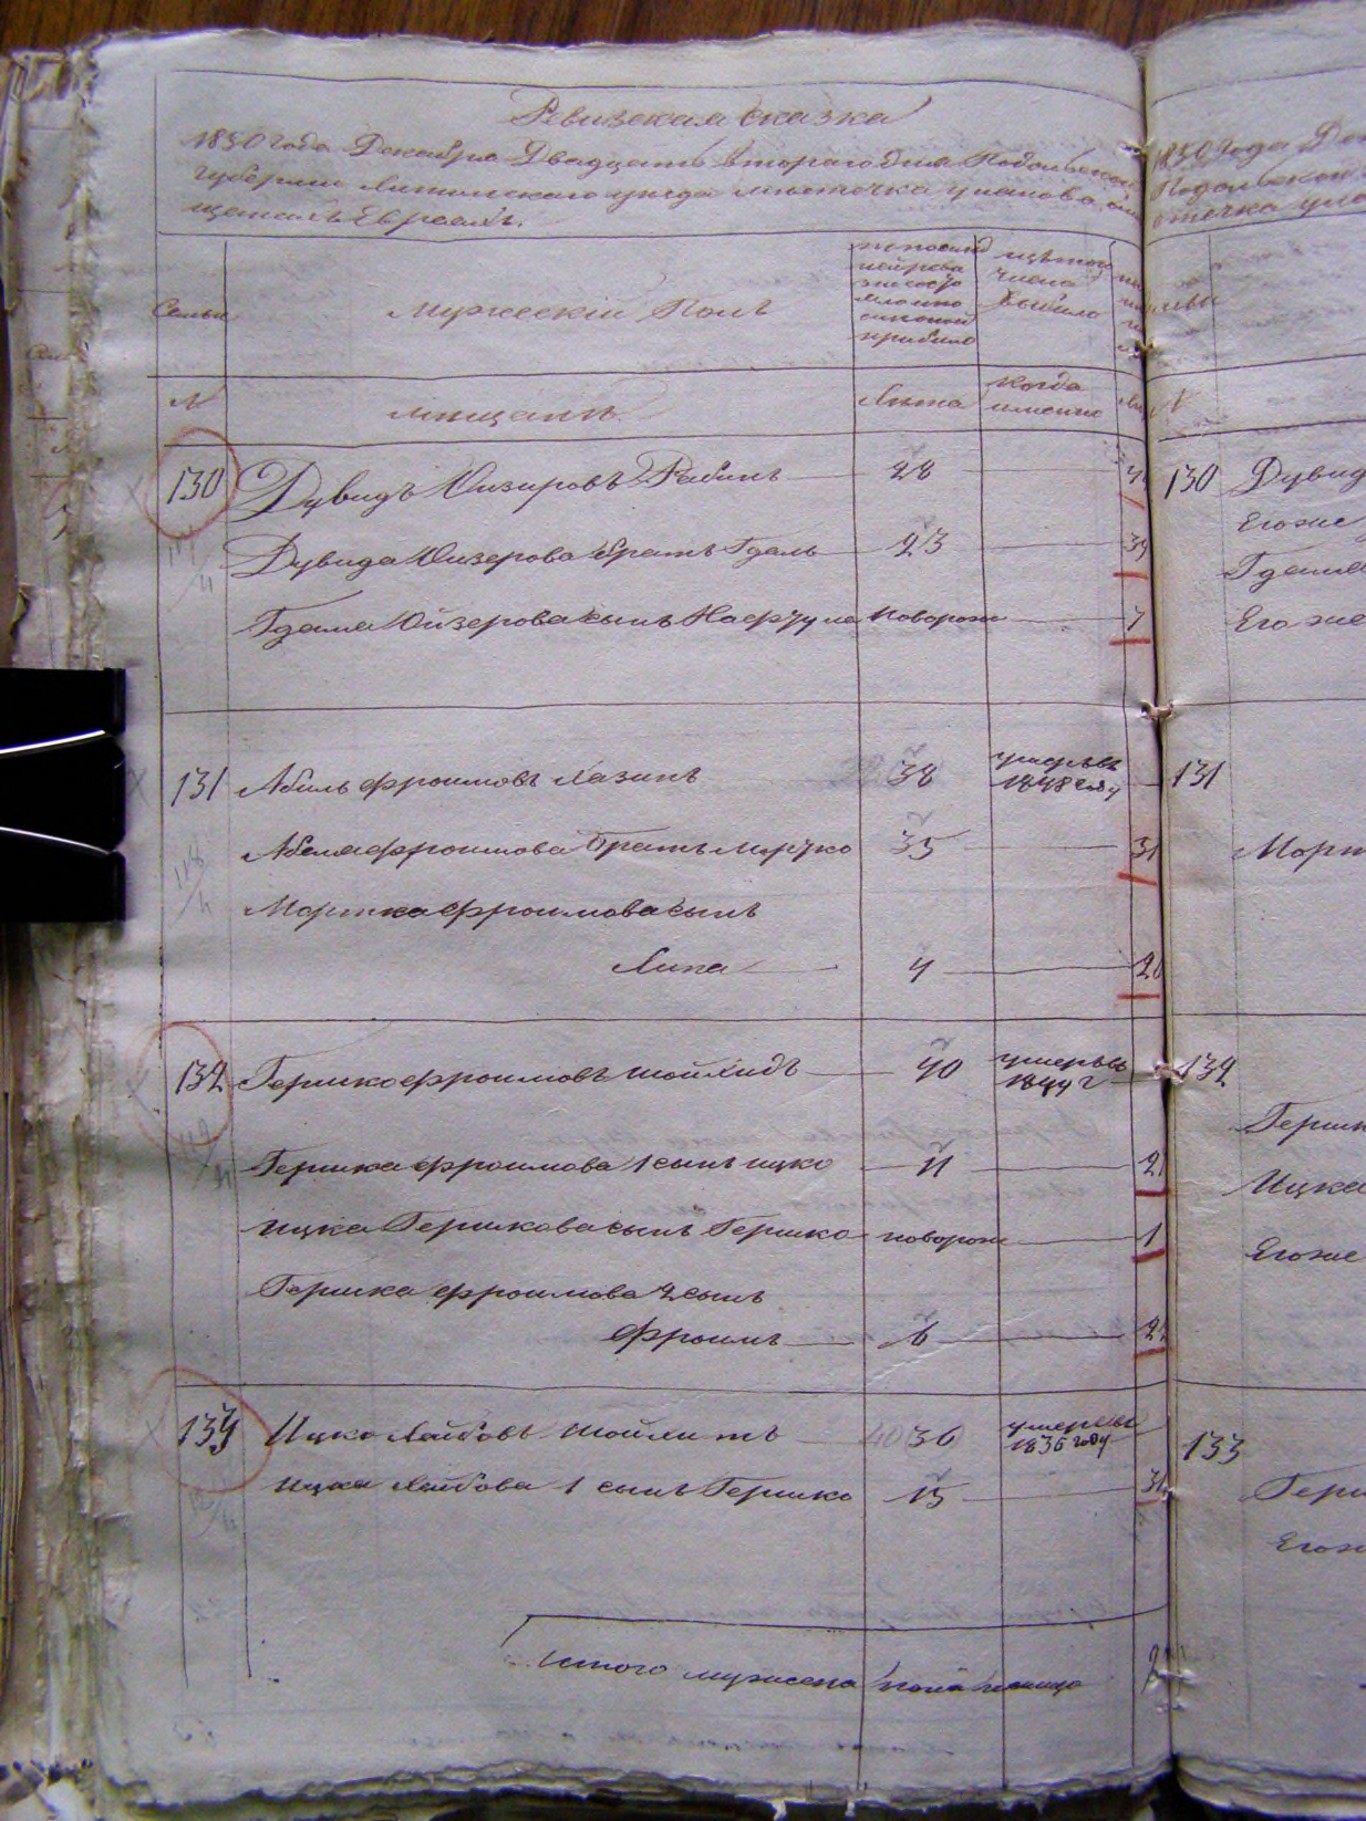 Ревизская сказка
1850 года Декабря Двадцать втораго дня Подольской
губернии Литинскаго уезда местечка Уланова о ме
щанахъ Евреяхъ.
Семьи
Мужескій Полъ
число
выбыло
№
мещане
Лета
когда
именно
130 Дувидъ Юизеровъ Рабинъ 28
Дувида Юизерова братъ Гдаль 23 39
Гдаля Юйзерова сынъ Нафтула новорож 7
131 Абиль Фроимовъ Хазинъ 38 умеръ въ
1848 году
Абеля Фроимова братъ Мортко 35 51
Мортка Фроимова сынъ
Липа 4 20
132 Гершко Фроимовъ Шойхидъ 40 умеръ въ
1844 г
Гершка Фроимова 1 сынъ Ицко 11
Ицка Гершкова сынъ Гершко новорож 1
Гершка Фроимова 2 сынъ
Фроимъ 6 22
133 Ицко Лейбовъ Шойхитъ 36 умеръ въ
1836 году
Ицка Лейбова 1 сынъ Гершко 15 31
Итого мужеска пола налицо
1850 года Де
Подольской
стечка Ула
№
130 Дувид
Егоже
Гдаля
Его же
131
Морт
132
Гершк
Ицка
Егоже
133
Герш
Егож